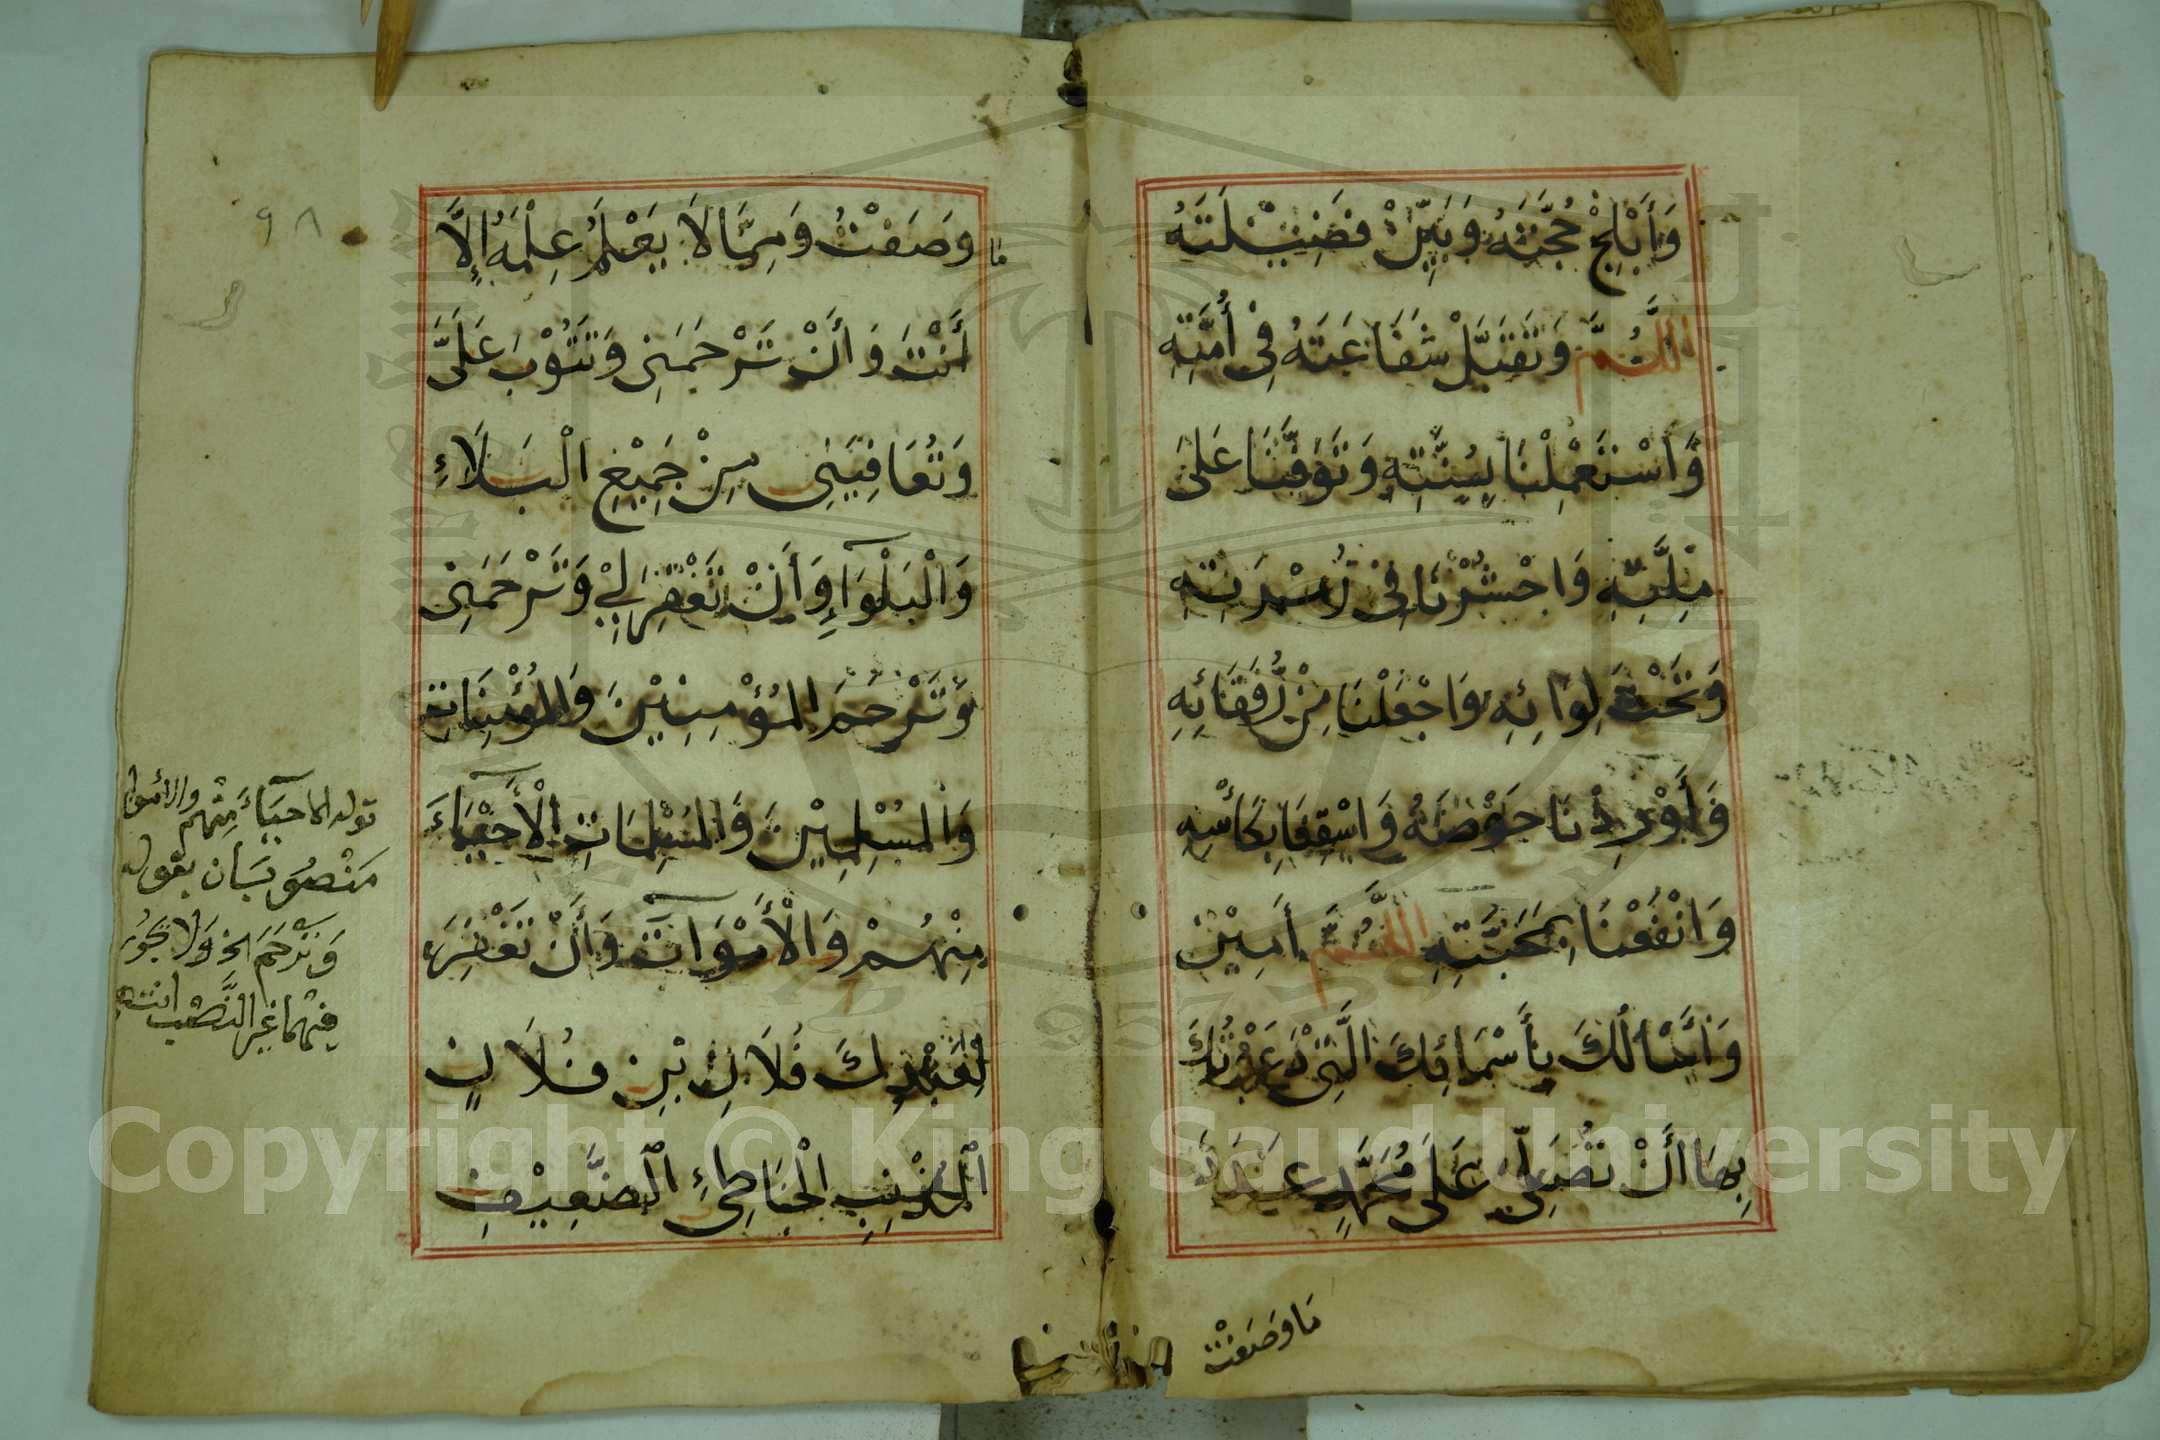 وَأَبْلِجْ حُجَّتَهُ وَبَيِّنْ فَضِيْلَتَهُ
اللَّهُمَّ وَتَقَبَّلْ شَفَاعَتَهُ فِيْ أُمَّتِهِ
وَاسْتَعْمِلْنَا بِسُنَّتِهِ وَتَوَفَّنَا عَلَىٰ
مِلَّتِهِ وَاحْشُرْنَا فِيْ زُمْرَتِهِ
وَتَحْتَ لِوَائِهِ وَاجْعَلْنَا مِنْ رُفَقَائِهِ
وَأَوْرِدْنَا حَوْضَهُ وَاسْقِنَا بِكَأْسِهِ
وَانْفَعْنَا بِمَحَبَّتِهِ اللَّهُمَّ أٰمِيْنَ
وَأَسْأَلُكَ بِأَسْمَائِكَ الَّتِيْ دَعَوْتُكَ
بِهَا أَنْ تُصَلِّيَ عَلَىٰ مُحَمَّدٍ عَدَدَ
مَا وَصَفْتُ
مَا
وَصَفْتُ وَمِمَّا لَا يَعْلَمُ عِلْمَهُ إِلَّا
أَنْتَ وَأَنْ تَرْحَمَنِي وَتَتُوْبَ عَلَيَّ
وَتُعَافِيَنِي مِنْ جَمِيْعِ الْبَلَاءِ
وَالْبَلْوَآءِ وَأَنْ تَغْفِرَ لِيْ وَتَرْحَمَنِي
وَتَرْحَمَ الْمُؤْمِنِيْنَ وَالْمُؤْمِنَاتِ
وَالْمُسْلِمِيْنَ وَالْمُسْلِمَاتِ الْأَحْيَآءَ
مِنْهُمْ وَالْأَمْوَاتَ وَأَنْ تَغْفِرَ
لِعَبْدِكَ فُلَانِ بْنِ فُلَانٍ
الْمُذْنِبِ الْخَاطِئِ الضَّعِيْفِ
٩٨
قوله الاحيآءَ مِنْهم والأموات
مَنْصُوبَان بقوله
وَتَرْحَمَ الخ وَلا يجُوز
فِيْهِمَا غير النَّصْب انتهى
Copyright © King Saud University
1957